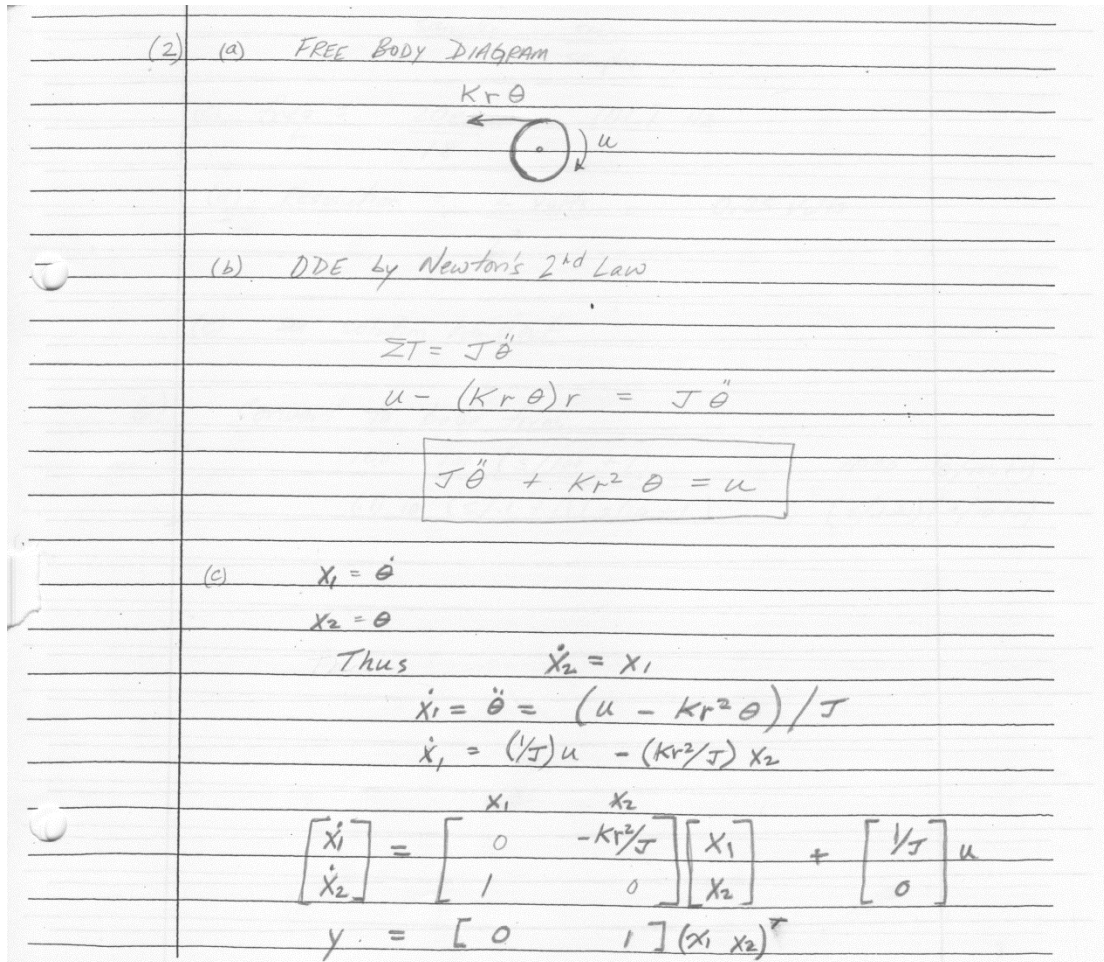 (2) (a) FREE BODY DIAGRAM
K r θ
u
(b) ODE by Newton's 2nd Law
ΣT = Jθ̈
u - (K r θ) r = J θ̈
Jθ̈ + Kr² θ = u
(c) x₁ = θ̇
x₂ = θ
Thus ẋ₂ = x₁
ẋ₁ = θ̈ = (u - Kr²θ)/J
ẋ₁ = (1/J)u - (Kr²/J) x₂
x₁ x₂
[ẋ₁] = [0 -Kr²/J] [x₁] + [1/J] u
[ẋ₂] [1 0] [x₂] [0]
y = [0 1] (x₁ x₂)ᵀ